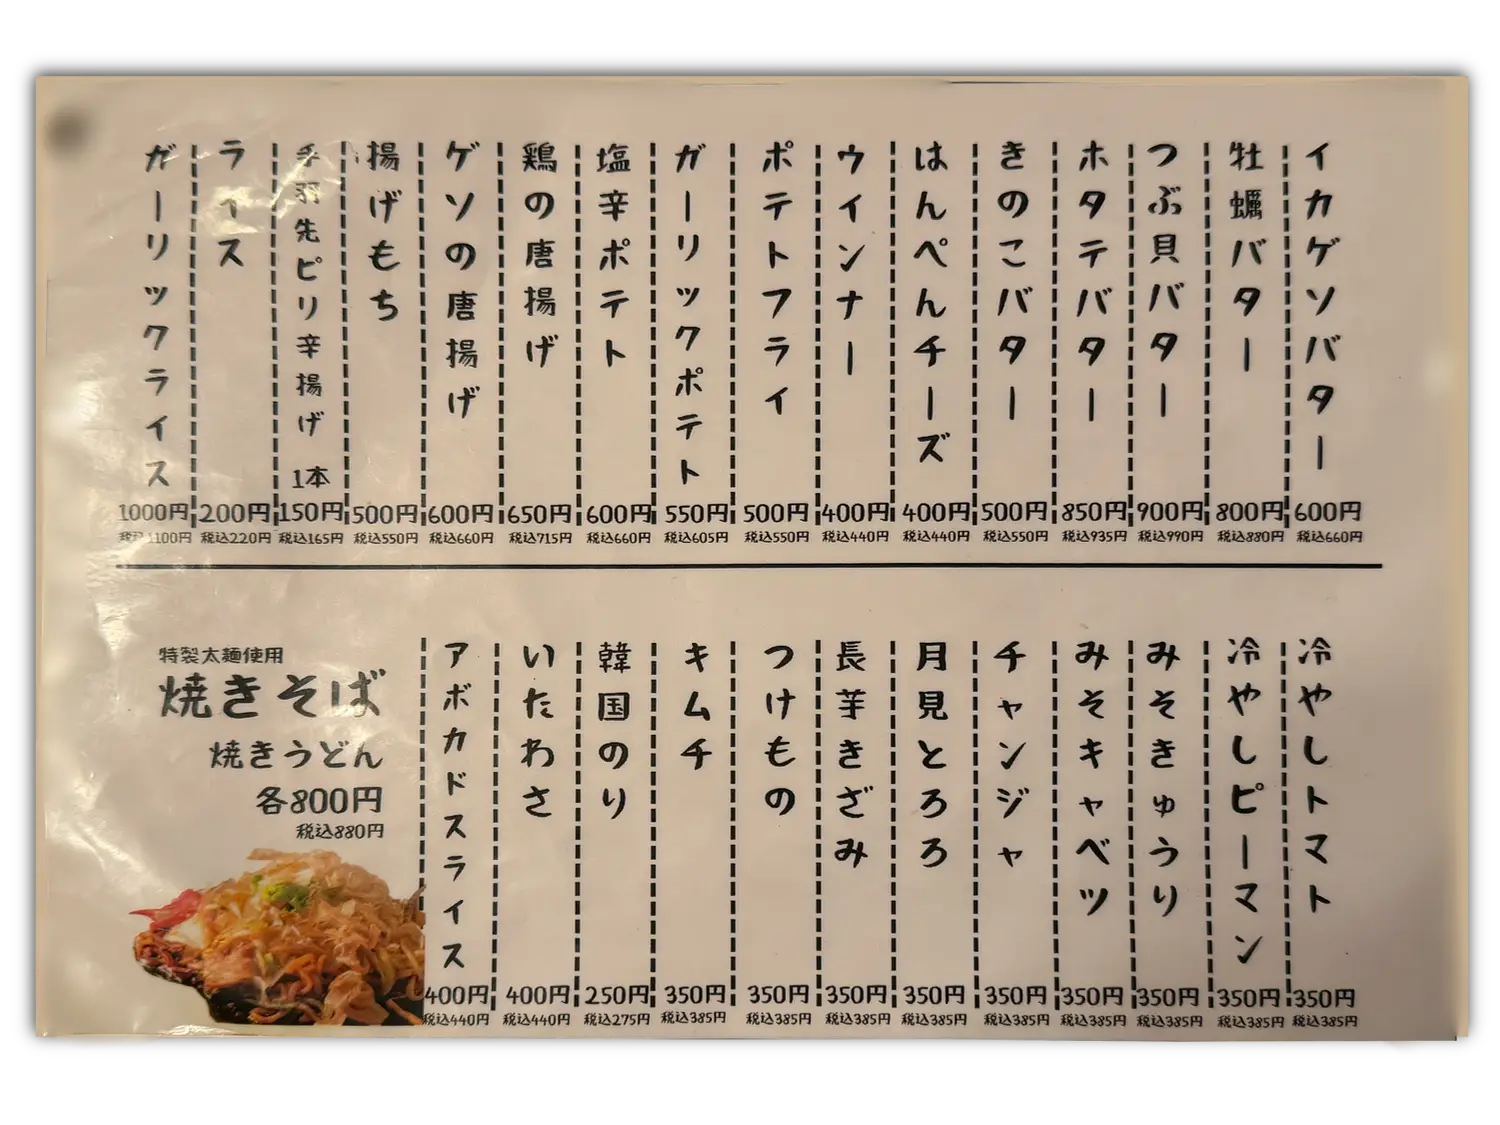 イカゲソバター
600円
税込660円
牡蠣バター
800円
税込880円
つぶ貝バター
900円
税込990円
ホタテバター
850円
税込935円
きのこバター
500円
税込550円
はんぺんチーズ
400円
税込440円
ウインナー
400円
税込440円
ポテトフライ
500円
税込550円
ガーリックポテト
550円
税込605円
塩辛ポテト
600円
税込660円
鶏の唐揚げ
650円
税込715円
ゲソの唐揚げ
600円
税込660円
揚げもち
500円
税込550円
手羽先ピリ辛揚げ 1本
150円
税込165円
ライス
200円
税込220円
ガーリックライス
1000円
税込1100円
冷やしトマト
350円
税込385円
冷やしピーマン
350円
税込385円
みそきゅうり
350円
税込385円
みそキャベツ
350円
税込385円
チャンジャ
350円
税込385円
月見とろろ
350円
税込385円
長芋きざみ
350円
税込385円
つけもの
350円
税込385円
キムチ
350円
税込385円
韓国のり
250円
税込275円
いたわさ
400円
税込440円
アボカドスライス
400円
税込440円
特製太麺使用
焼きそば
焼きうどん
各800円
税込880円